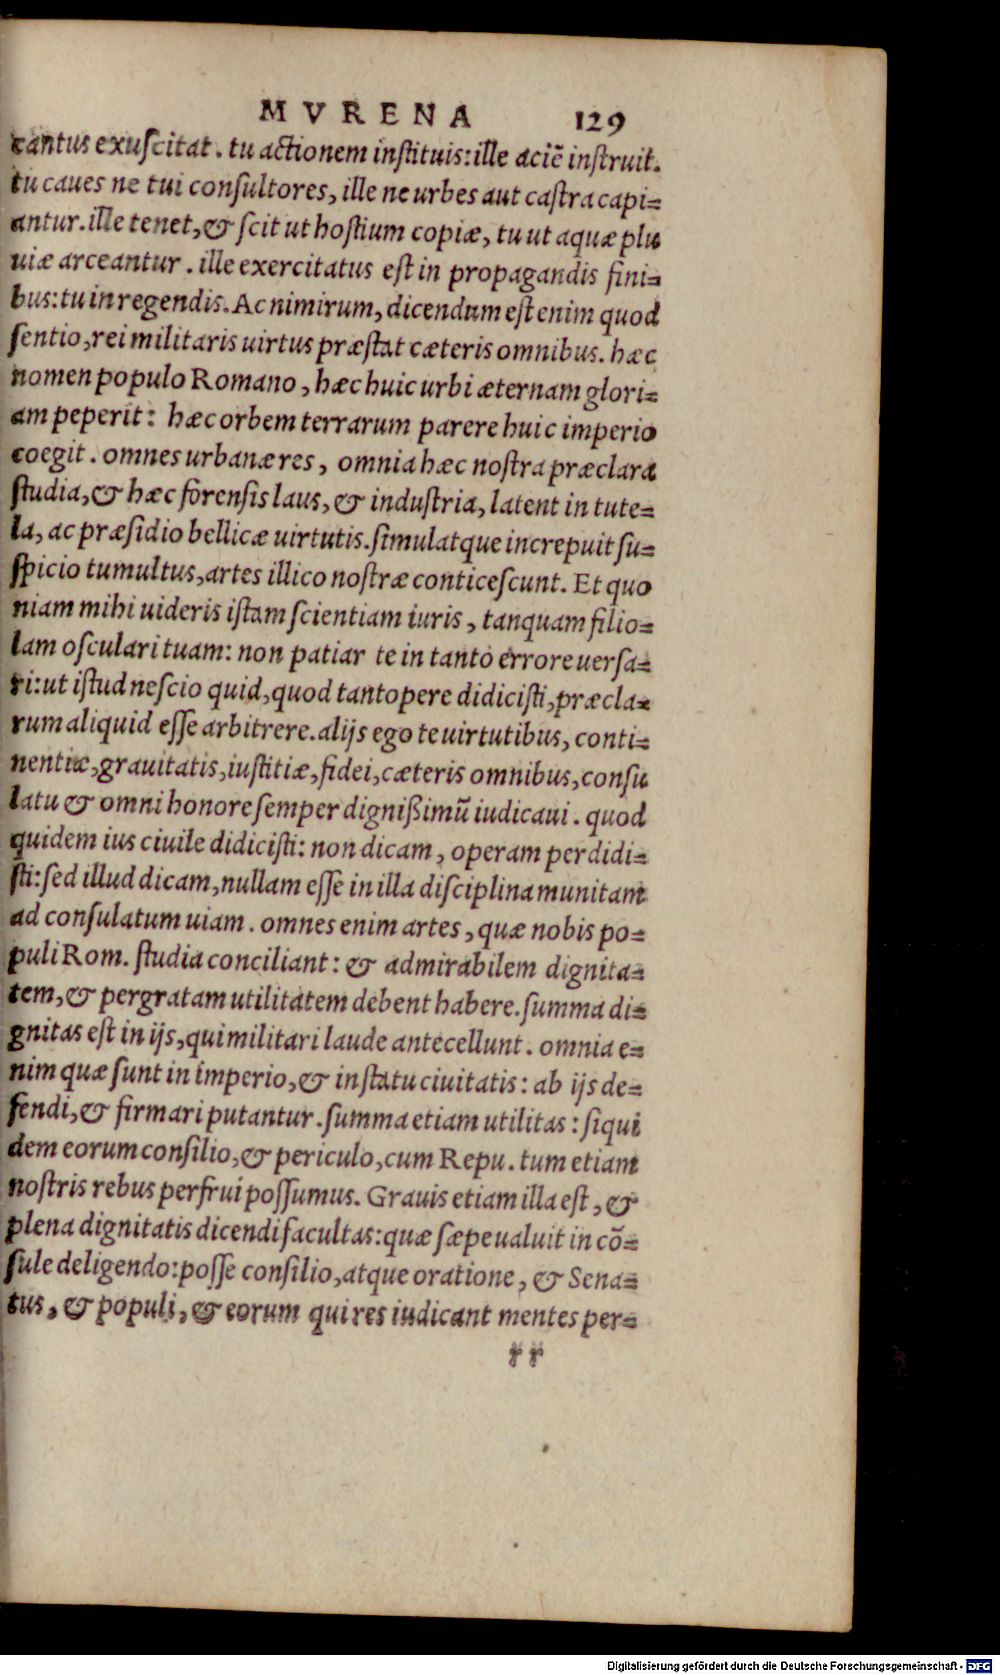 MVRENA 129
cantus exuscitat. tu actionem instituis: ille aciē instruit.
tu caues ne tui consultores, ille ne urbes aut castra capi=
antur. ille tenet, & scit ut hostium copiæ, tu ut aquæ plu
uiæ arceantur. ille exercitatus est in propagandis fini=
bus: tu in regendis. Ac nimirum, dicendum est enim quod
sentio, rei militaris uirtus præstat cæteris omnibus. hæc
nomen populo Romano, hæc huic urbi æternam glori=
am peperit: hæc orbem terrarum parere huic imperio
coegit. omnes urbanæ res, omnia hæc nostra præclara
studia, & hæc forensis laus, & industria, latent in tute=
la, ac præsidio bellicæ uirtutis. simulatque increpuit su=
spicio tumultus, artes illico nostræ conticescunt. Et quo
niam mihi uideris istam scientiam iuris, tanquam filio=
lam osculari tuam: non patiar te in tanto errore uersa=
ri: ut istud nescio quid, quod tantopere didicisti, præcla=
rum aliquid esse arbitrere. alijs ego te uirtutibus, conti=
nentiæ, grauitatis, iustitiæ, fidei, cæteris omnibus, consu
latu & omni honore semper dignißimū iudicaui. quod
quidem ius ciuile didicisti: non dicam, operam perdidi=
sti: sed illud dicam, nullam esse in illa disciplina munitam
ad consulatum uiam. omnes enim artes, quæ nobis po=
puli Rom. studia conciliant: & admirabilem dignita=
tem, & pergratam utilitatem debent habere. summa di=
gnitas est in ijs, qui militari laude antecellunt. omnia e=
nim quæ sunt in imperio, & in statu ciuitatis: ab ijs de=
fendi, & firmari putantur. summa etiam utilitas: siqui
dem eorum consilio, & periculo, cum Repu. tum etiam
nostris rebus perfrui possumus. Grauis etiam illa est, &
plena dignitatis dicendi facultas: quæ sæpe ualuit in cō=
sule deligendo: posse consilio, atque oratione, & Sena=
tus, & populi, & eorum qui res iudicant mentes per=
rr
Digitalisierung gefördert durch die Deutsche Forschungsgemeinschaft - DFG